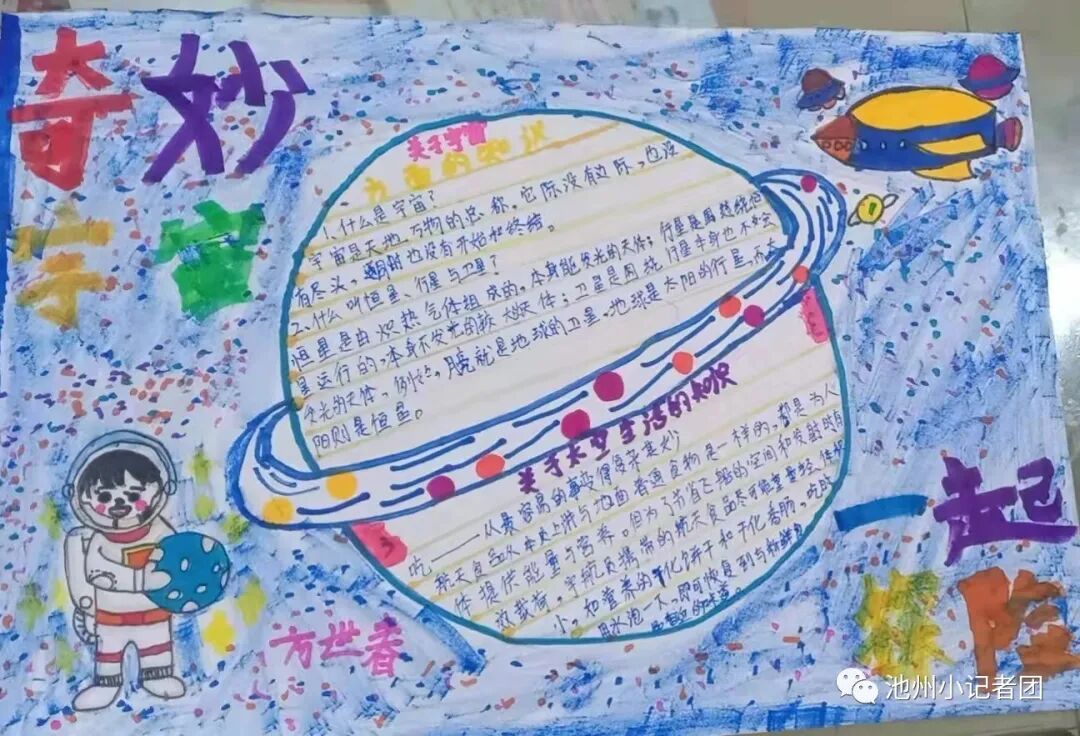 奇妙
宇宙
关于宇宙
方面的知识
1.什么是宇宙?
宇宙是天地万物的总称,它际没有边际,也没
有尽头,时也没有开始和终结。
2.什么叫恒星、行星与卫星?
恒星是由炽热气体组成的,本身能发光的天体;行星是围绕恒
星运行的,本身不发光的天体;卫星是围绕行星本身也不会
发光的天体,例如,月亮就是地球的卫星。地球是太阳的行星,而太
阳则是恒星。
关于太空生活的知识
吃——从最容易的事变得复杂
航天食品从本史上讲与地面普通食物是一样的,都是为人
体提供能量与营养。但为了节省飞船的空间和发射时的
效载荷,宇航员携带的航天食品尽可能重量轻,体积
小,如营养的化饼干和干化香肠,吃时
用水泡一下,即可恢复到与新鲜
方世春
一起
探险
池州小记者团